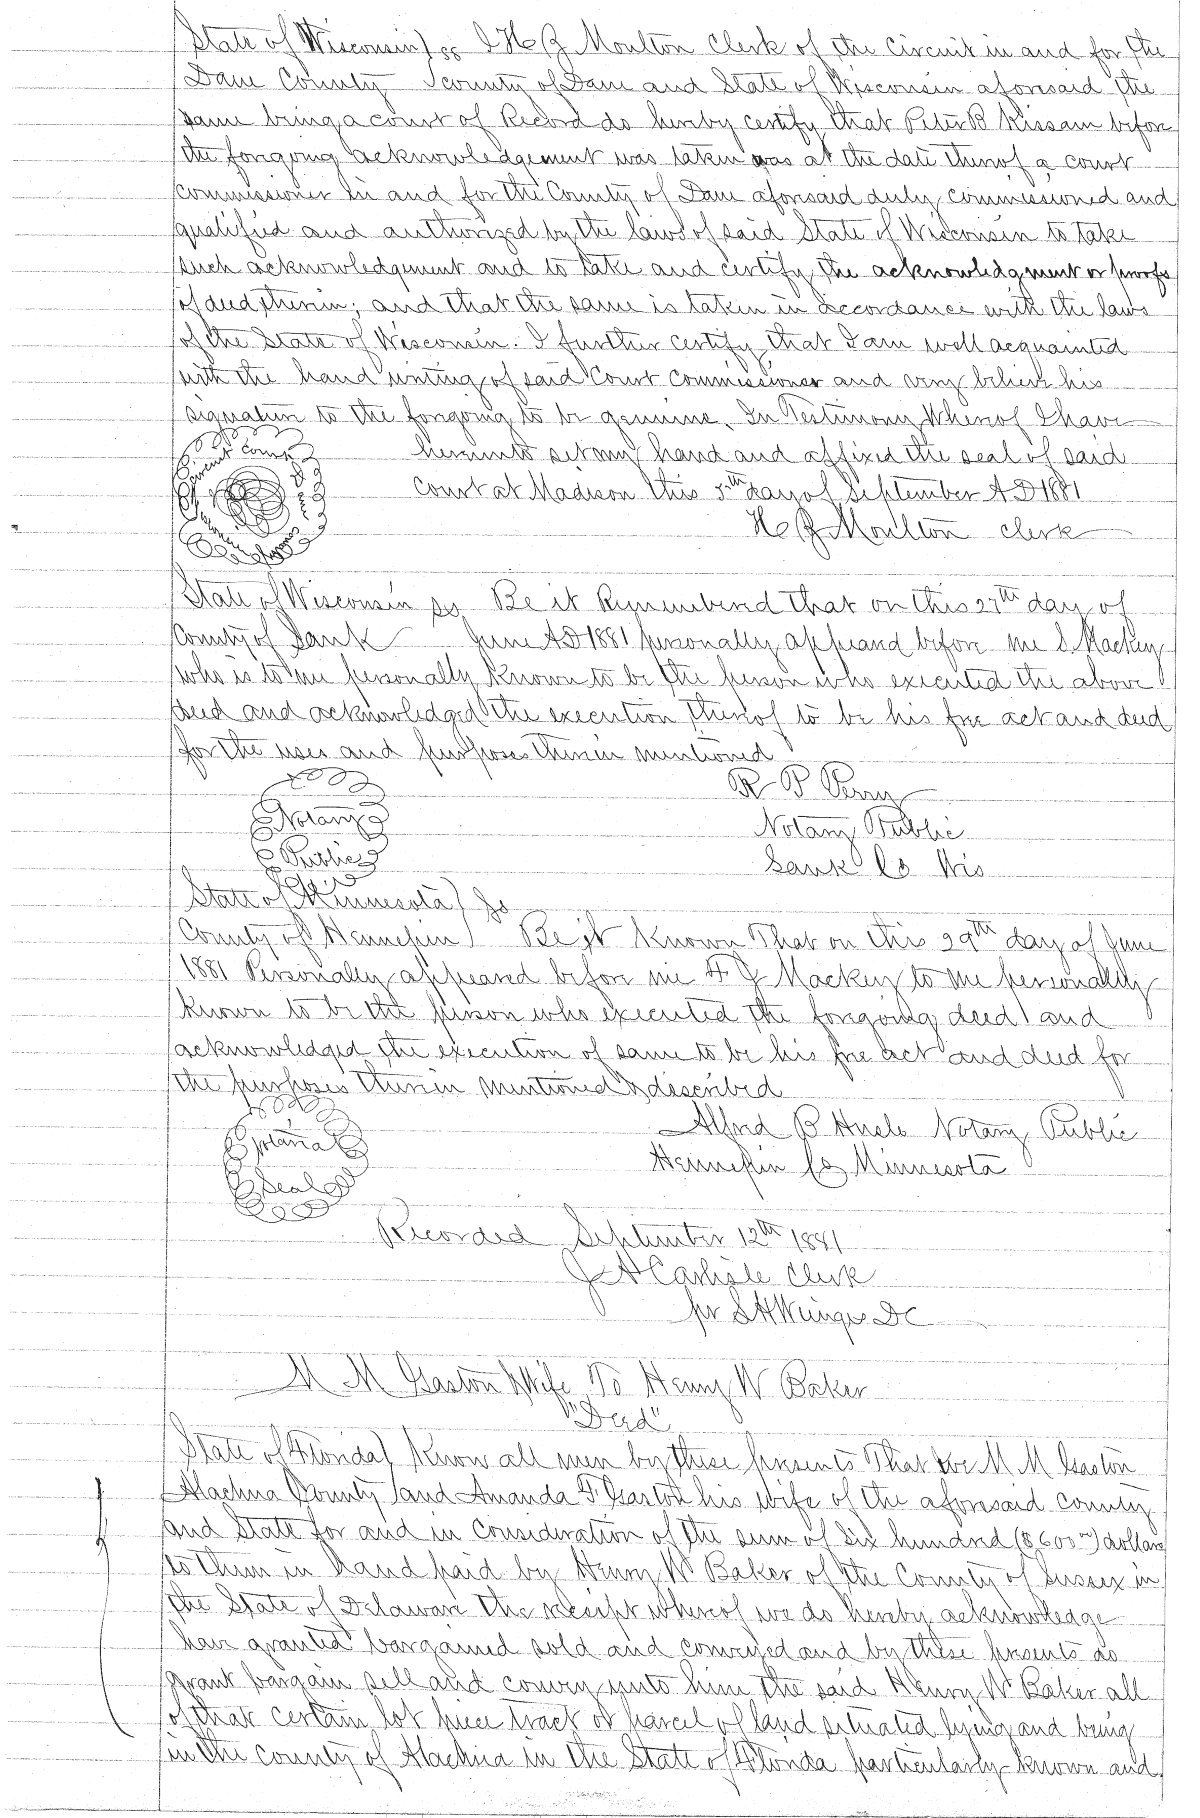 State of Wisconsin) ss I H Z Moulton Clerk of the Circuit in and for the
Dane County county of Dane and State of Wisconsin aforesaid the
same being a court of Record do hereby certify that Peter B Kissam before
the forgoing acknowledgement was taken was at the date thereof a court
commissioner in and for the County of Dane aforsaid duly commissioned and
qualified and authorized by the laws of said State of Wisconsin to take
such acknowledgement and to take and certify the acknowledgment or proofs
of deeds therin; and that the same is taken in accordance with the laws
of the State of Wisconsin. I further certify that I am well acquainted
with the hand writing of said Court Commissioner and very believe his
signature to the forgoing to be genuine. In Testimony Whereof I have
hereunto set my hand and affixed the seal of said
Court at Madison this 5th day of September AD 1881
H Z Moulton Clerk
Circuit Court Dane
Wisconsin
State of Wisconsin ss Be it Remembered that on this 27th day of
County of Sauk June AD 1881 personally appeared before me S. Mackey
who is to me personally known to be the person who executed the above
deed and acknowledged the execution thereof to be his free act and deed
for the uses and purposes therein mentioned
R P Perry
Notary Public
Sauk Co Wis
Notary
Public
State of Minnesota) ss
County of Hennepin) Be it Known That on this 29th day of June
1881 Personally appeared before me F J Mackey to me personally
known to be the person who executed the foregoing deed and
acknowledged the execution of same to be his free act and deed for
the purposes therein mentioned & described
Notarial
Seal
Notary Public
Hennepin Co Minnesota
Recorded September 12th 1881
J A Carlisle Clerk
pr S H Wienges DC
M M Gaston & Wife To Henry W Baker
"Deed"
State of Florida) Know all men by these presents That we M M Gaston
Alachua County) and Amanda F Gaston his Wife of the aforesaid county
and State for and in consideration of the sum of Six hundred ($600) dollars
to them in hand paid by Henry W Baker of the County of Sussex in
the State of Delaware the receipt whereof we do hereby acknowledge
have granted bargained sold and conveyed and by these presents do
grant bargain sell and convey unto him the said Henry W Baker all
of that certain lot piece tract or parcel of land situated lying and being
in the county of Alachua in the State of Florida particularly known and